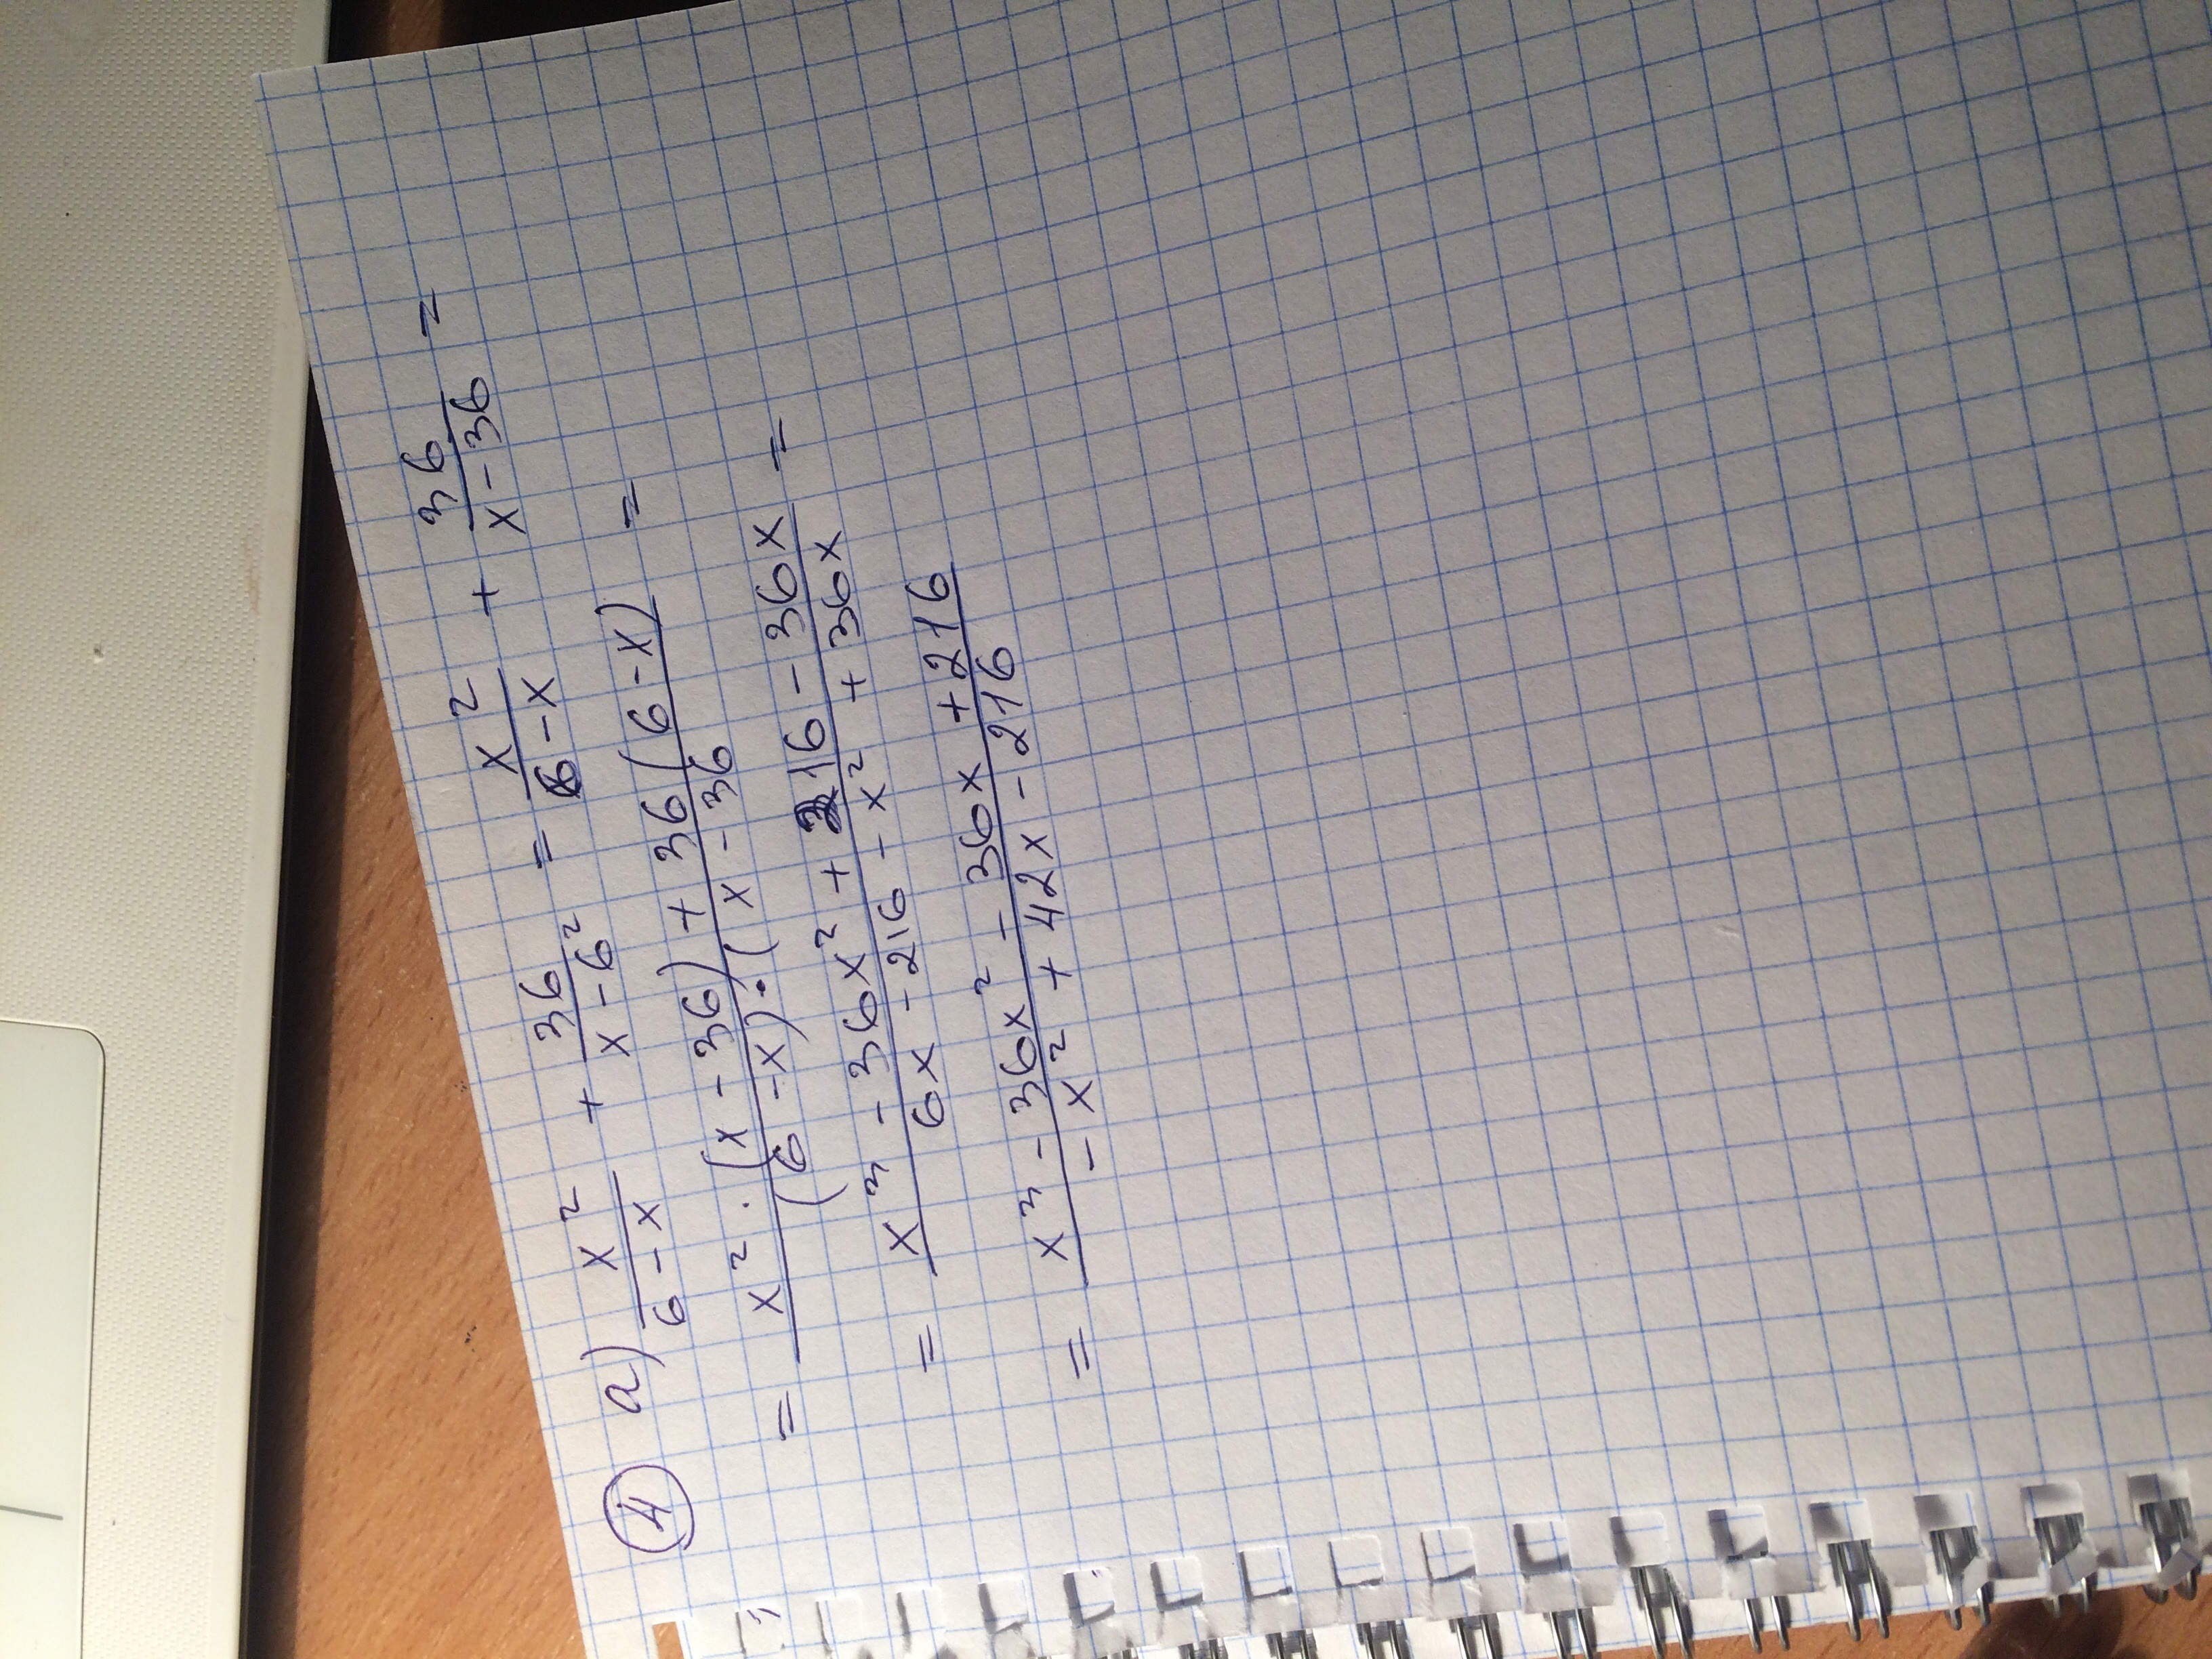 ④ a) x²/(6-x) + 36/(x-6²) = x²/(6-x) + 36/(x-36) =
= (x²·(x-36)+36(6-x))/((6-x)·(x-36)) =
= (x³-36x²+216-36x)/(6x-216-x²+36x) =
= (x³-36x²-36x+216)/(-x²+42x-216)